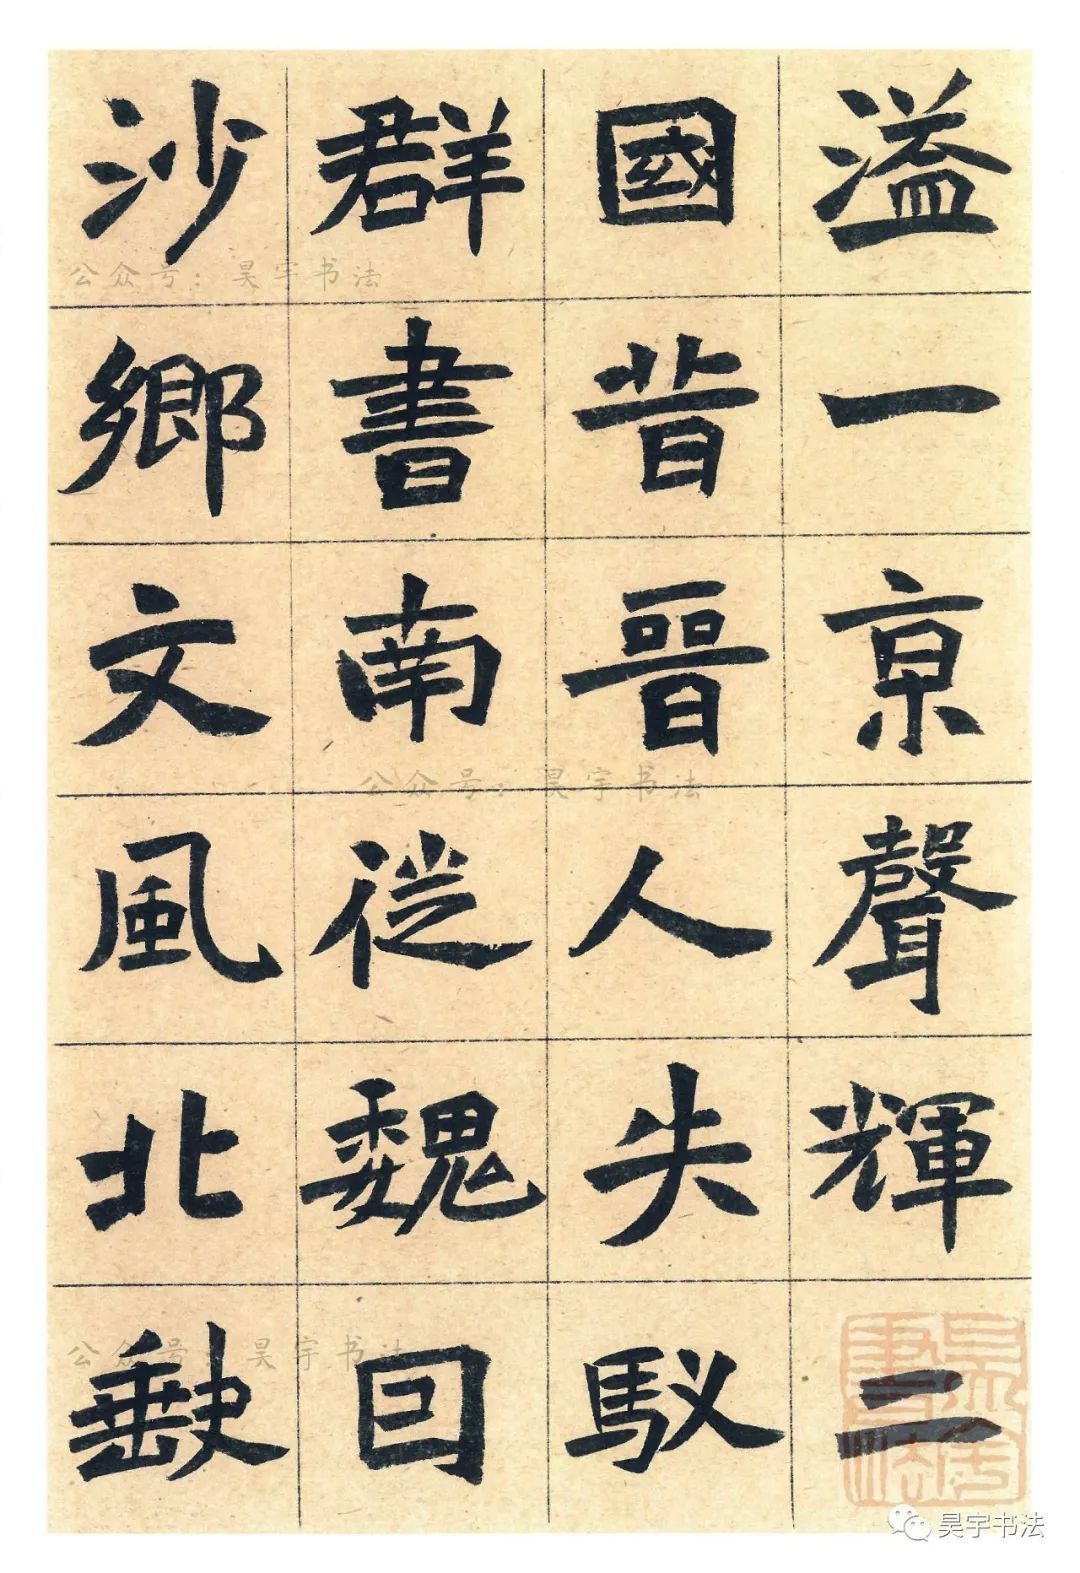 溢一京聲輝二
國昔晉人失馭
群書南徙魏囙
沙鄉文風北缺
公众号：昊宇书法
公众号：昊宇书法
公众号：昊宇书法
昊宇書法
昊宇书法